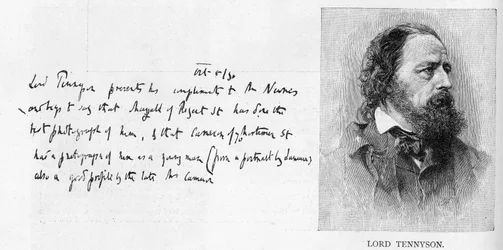 Oct 5/90
Lord Tennyson presents his compliments to Mr Newnes
and begs to say that Mayall of Regent St has done the
best photograph of him, & that Cameron of 70 Mortimer St
has a photograph of him as a young man (from a portrait by Laurence)
also a good profile by the late Mrs Cameron
LORD TENNYSON.